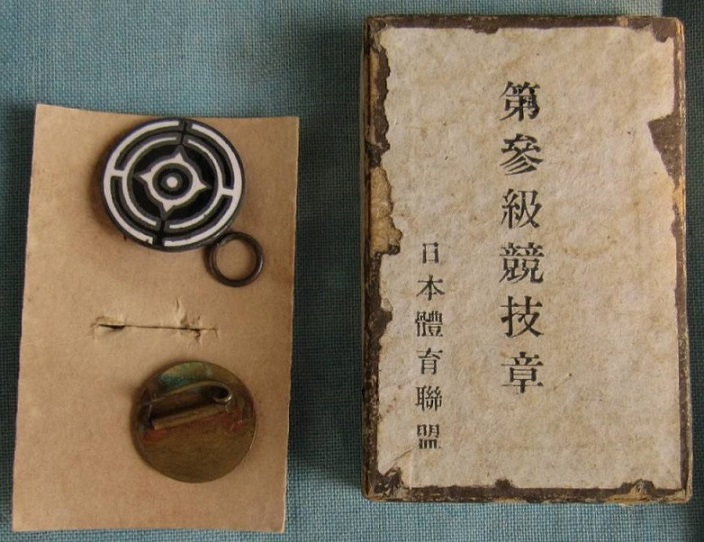 第參級競技章
日本體育聯盟